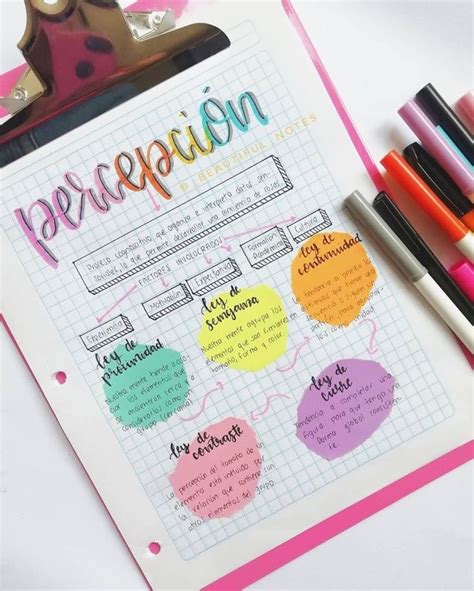 percepción
BEAUTIFUL NOTES
Proceso cognoscitivo que organiza e interpreta datos sen-
soriales, lo que permite desarrollar una conciencia de cosas
FACTORES INVOLUCRADOS
Experiencia
Motivación
Expectativa
Formación
Académica
Cultura
ley de
proximidad
Nuestra mente tiende a
por los elementos que
encuentran cerca y a
considerarlos como
grupo (cercanía)
ley de
semejanza
Nuestra mente agrupa los
elementos que son similares en
tamaño, forma y color
ley de
continuidad
Tendencia a
que tiene una
ley de
contraste
La percepción del tamaño de un
elemento está influido por
la relación que contiene con
otros elementos del grupo
ley de
cierre
Tendencia a completar una
figura para que tenga una
forma global
te.